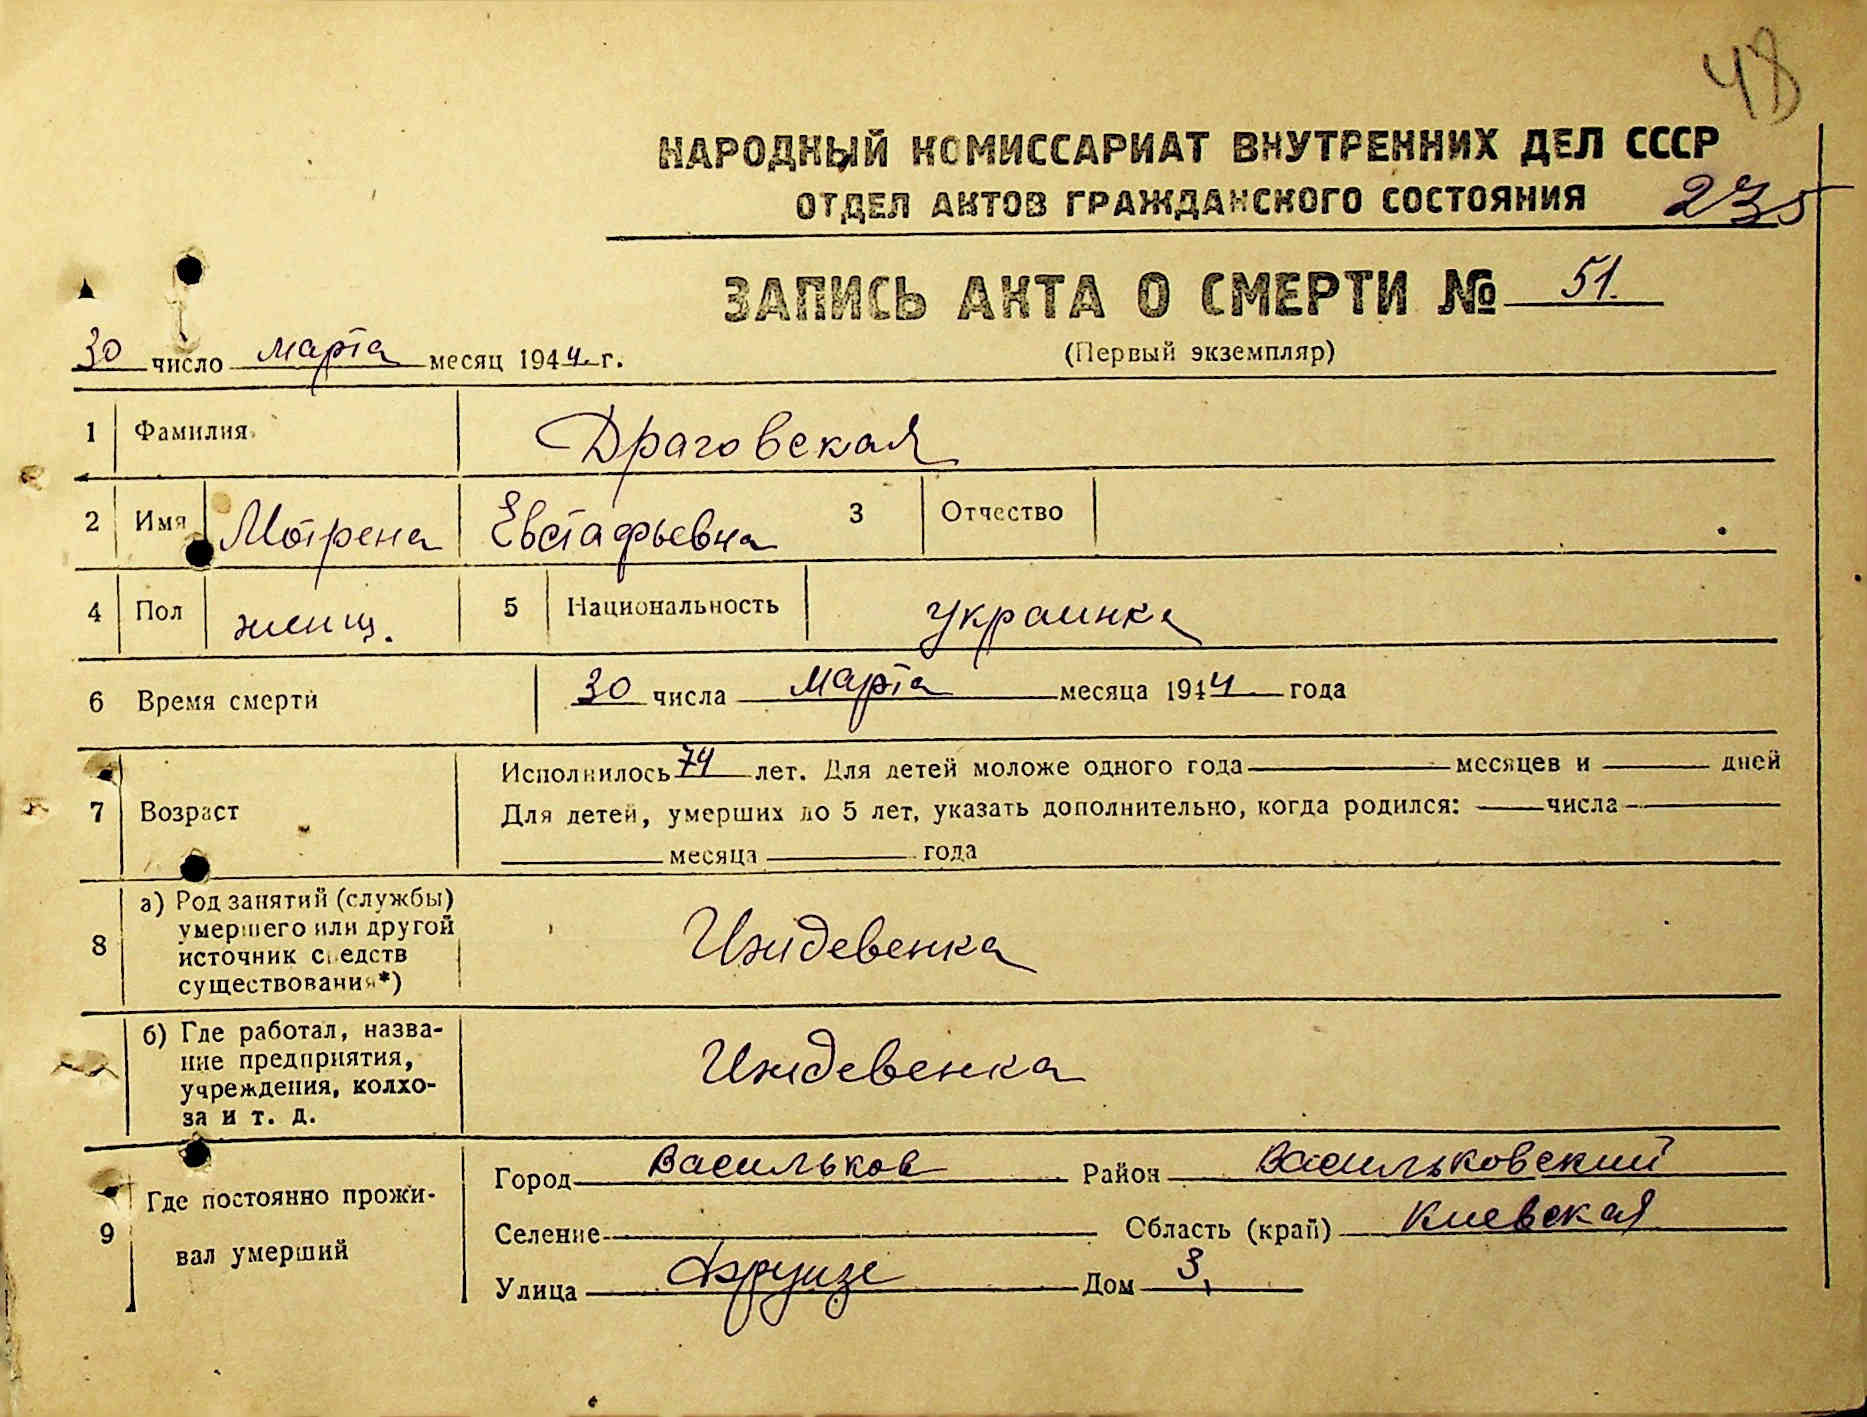 48
НАРОДНЫЙ КОМИССАРИАТ ВНУТРЕННИХ ДЕЛ СССР
ОТДЕЛ АКТОВ ГРАЖДАНСКОГО СОСТОЯНИЯ 235
ЗАПИСЬ АКТА О СМЕРТИ № 51.
30 число марта месяц 1944 г.
(Первый экземпляр)
1 Фамилия Драговская
2 Имя Мотрена Евстафьевна 3 Отчество
4 Пол женщ. 5 Национальность украинка
6 Время смерти 30 числа марта месяца 1944 года
Исполнилось 74 лет. Для детей моложе одного года месяцев и дней
7 Возраст Для детей, умерших до 5 лет, указать дополнительно, когда родился: числа
месяца года
а) Род занятий (службы)
умершего или другой
8 источник средств Иждевенка
существования*)
б) Где работал, назва-
ние предприятия, Иждевенка
учреждения, колхо-
за и т. д.
Город Васильков Район Васильковский
Где постоянно прожи-
9 Селение Область (край) Киевская
вал умерший
Улица Фрунзе Дом 3,